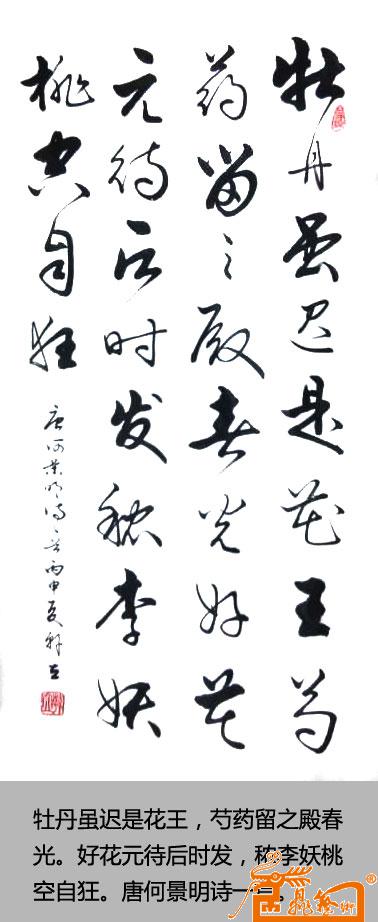 牡丹虽迟是花王芍
药留之殿春光好花
元待后时发秾李妖
桃空自狂
唐何景明诗一首丙申夏
牡丹虽迟是花王，芍药留之殿春
光。好花元待后时发，秾李妖桃
空自狂。唐何景明诗一首。